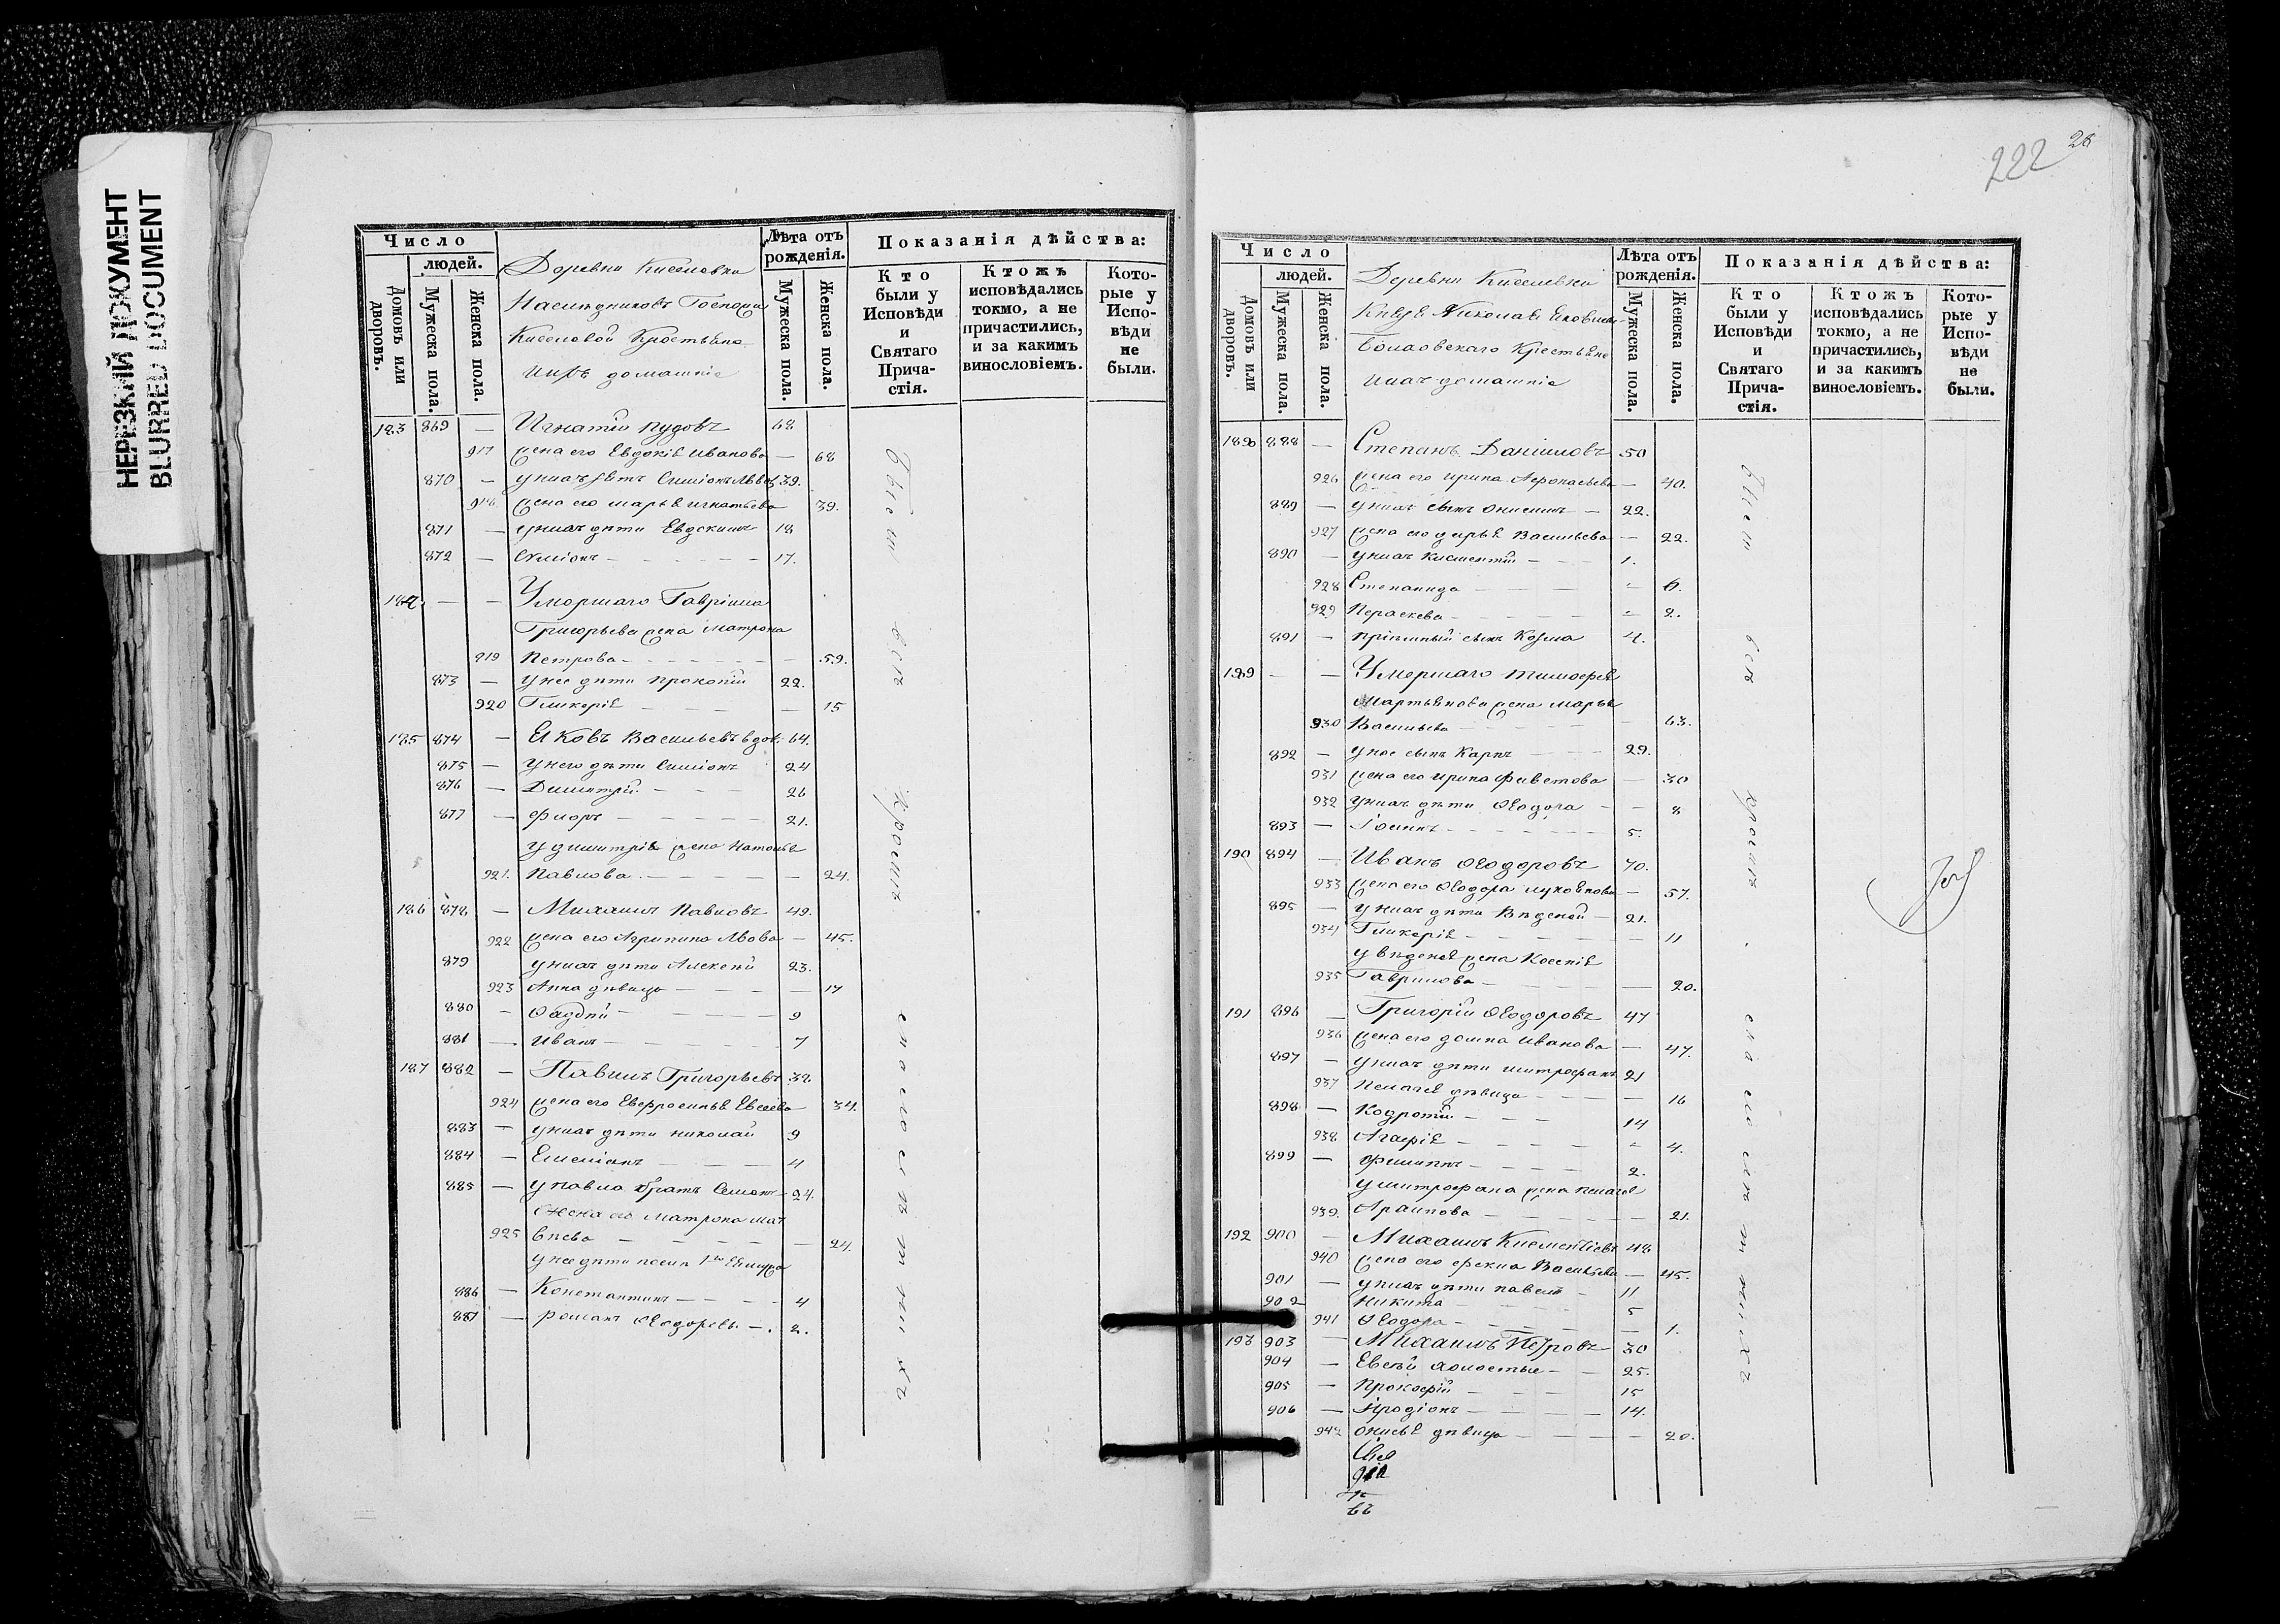 НЕРЕЗКИЙ ДОКУМЕНТ
BLURRED DOCUMENT
Число
людей.
Домовъ или дворовъ.
Мужеска пола.
Женска пола.
Деревни Киселевки
Наследниковъ Госпожи
Киселовой Крестьяне
ихъ домашніе
Лѣта отъ рожденія.
Мужеска пола.
Женска пола.
Показанія дѣйства:
Кто были у Исповѣди и Святаго Причастія.
Ктожъ исповѣдались токмо, а не причастились, и за какимъ винословіемъ.
Которые у Исповѣди не были.
183 869 — Игнатій Пудовъ 68
917 жена его Евдокія Иванова — 68
870 — у нихъ зять Симіонъ Львовъ 39.
918 жена его Марья Игнатьева 39.
871 — у нихъ дѣти Евдокимъ 18
872 — Симіонъ 17.
184. — — Умершаго Гавріила
Григорьева жена Матрона
919 Петрова — 59.
873 — у нее дѣти Прокопій 22.
920 Гликерія — 15
185 874 — Яковъ Васильевъ вдов. 64.
875 — у него дѣти Симіонъ 24
876 — Димитрій 26
877 — Флоръ 21.
у Димитрія жена Наталья
921. Павлова — 24.
186 878 — Михаилъ Павловъ 49.
922 жена его Агрипина Львова — 45.
879 у нихъ дѣти Алексѣй 23.
923 Анна дѣвица — 17
880 — Фаддѣй 9
881 — Иванъ 7
187 882 — Павелъ Григорьевъ 38
924 жена его Евфросинья Евсѣева 34.
883 — у нихъ дѣти Николай 9
884 — Емеліанъ 4
885 — у Павла братъ Семенъ 24.
Жена его Матрона Мат
925 вѣева — 24.
у нее дѣти
886 — Константинъ 4
887 — Романъ Ѳедоровъ 2.
Были
всѣ
кромѣ
малолѣтнихъ
222
26
Число
людей.
Домовъ или дворовъ.
Мужеска пола.
Женска пола.
Деревни Киселевки
Князя Николая Яковлев.
Крестьяне
ихъ домашніе
Лѣта отъ рожденія.
Мужеска пола.
Женска пола.
Показанія дѣйства:
Кто были у Исповѣди и Святаго Причастія.
Ктожъ исповѣдались токмо, а не причастились, и за какимъ винословіемъ.
Которые у Исповѣди не были.
188 888 — Степанъ Даніиловъ 50
926 жена его Ирина Афонасьева — 40.
889 — у нихъ сынъ Онисимъ — 22.
927 жена его Дарья Васильева — 22.
890 — у нихъ Климентій 1.
928 Степанида 6.
929 Пераскева 2.
891 — пріемный сынъ Козма 4.
189 — — Умершаго Тимофея
Мартьянова жена Марья
930 Васильева — 63.
892 — у нее сынъ Карпъ 29.
931 жена его Ирина Филетова — 30
932 у нихъ дѣти Ѳедора — 8
893 — Іоиль 5.
190 894 — Иванъ Ѳедоровъ 70.
933 жена его Ѳедора — 57.
895 — у нихъ дѣти 21.
934 Гликерія — 11
жена Ксенія
935 Гаврилова — 20.
191 896 — Григорій Ѳедоровъ 47
936 жена его Домна Иванова — 47.
897 — у нихъ дѣти Митрофанъ 21
937 Пелагея дѣвица — 16
898 — Кодротій 14
938 Агафія 4.
899 — Филиппъ 2.
у Митрофана жена Пелагея
939. Архипова — 21.
192 900 — Михаилъ Климентіевъ 48
940 жена его Фекла Васильева — 45.
901 — у нихъ дѣти Павелъ 11
902 Никита 5
941 Ѳедора — 1.
193 903 — Михаилъ Петровъ 30
904 — Евсѣй холостые 25.
905 — Прокофій 15
906 — Иродіонъ 14.
942 Онисья дѣвица — 20.
Были
всѣ
кромѣ
малолѣтнихъ